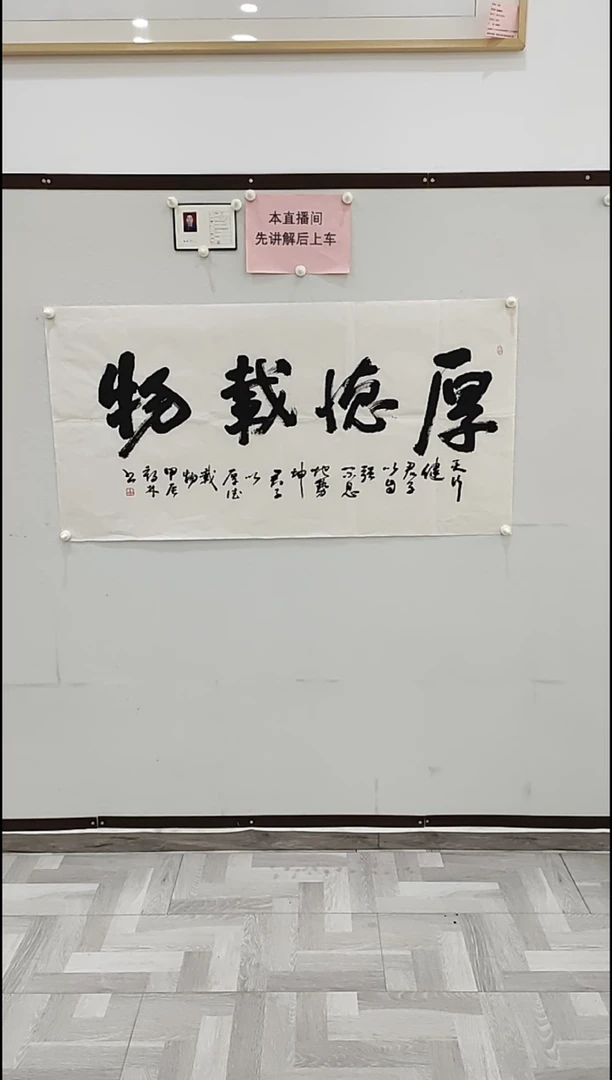 本直播间
先讲解后上车
厚德载物
天行
健
君子
以自
强
不息
地势
坤
君子
以
厚德
载
物
甲辰
书